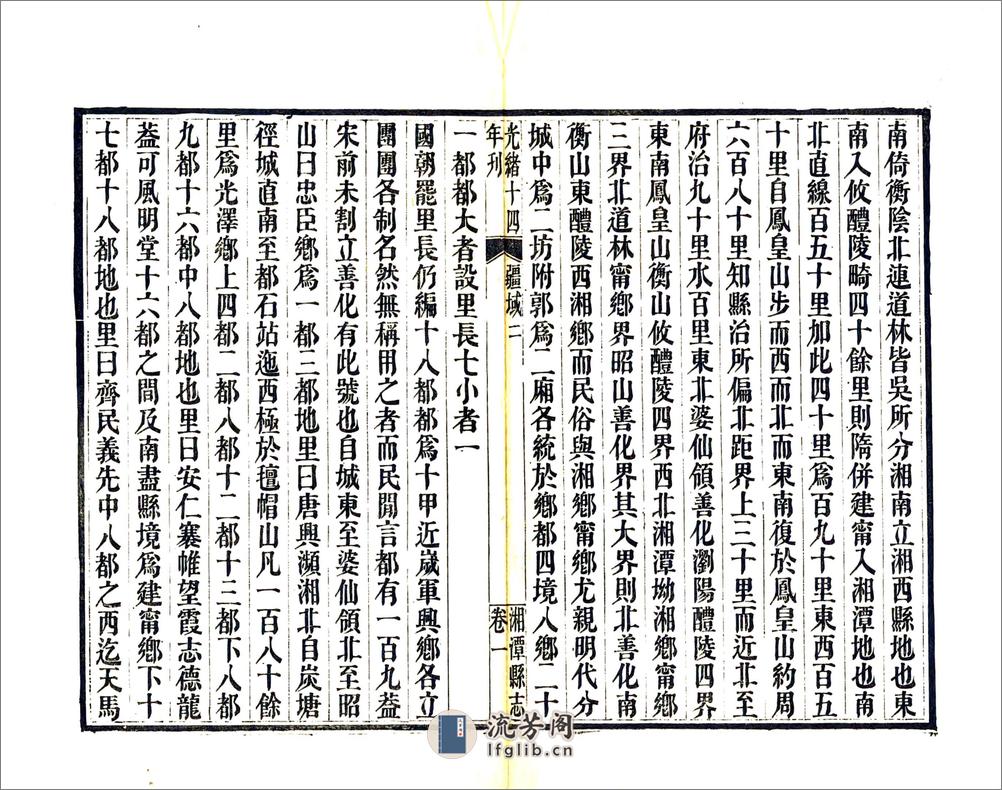 南倚衡陰北連道林皆吳所分湘南立湘西縣地也東
南入攸醴陵畸四十餘里則隋併建甯入湘潭地也南
北直線百五十里加此四十里爲百九十里東西百五
十里自鳳皇山步而西而北而東南復於鳳皇山約周
六百八十里知縣治所偏北距界上三十里而近北至
府治九十里水百里東北婆仙領善化瀏陽醴陵四界
東南鳳皇山衡山攸醴陵四界西北湘潭坳湘鄉甯鄉
三界北道林甯鄉界昭山善化界其大界則北善化南
衡山東醴陵西湘鄉而民俗與湘鄉甯鄉尤親明代分
城中爲二坊附郭爲二廂各統於鄉都四境八鄉二十
光緒十四年刊
疆域二
湘潭縣志
卷一
一都都大者設里長七小者一
國朝罷里長仍編十八都都爲十甲近歲軍興鄉各立
團團各制名然無稱用之者而民閒言都有一百九葢
宋前未割立善化有此號也自城東至婆仙領北至昭
山曰忠臣鄉爲一都三都地里曰唐興瀕湘北自炭塘
徑城直南至都石站迤西極於氊帽山凡一百八十餘
里爲光澤鄉上四都二都八都十二都十三都下八都
九都十六都中八都地也里曰安仁褰帷望霞志德龍
葢可風明堂十六都之間及南盡縣境爲建甯鄉下十
七都十八都地也里曰齊民義先中八都之西迄天馬
流芳阁
lfglib.cn